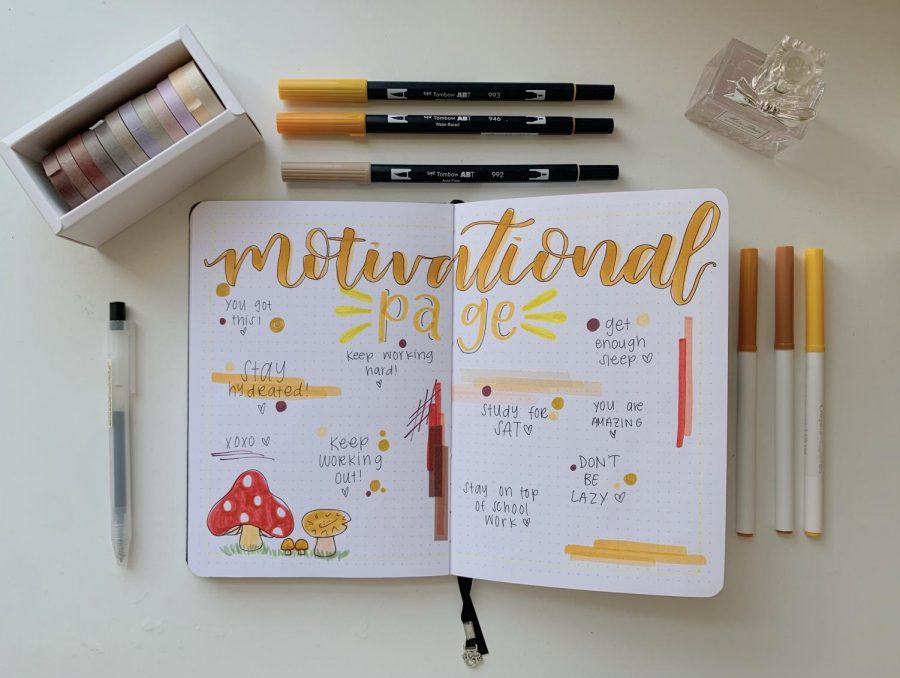 Tombow ABT 993
Tombow ABT 946
Water-Based
Tombow ABT 992
motivational
page
you got
this!
keep working
hard!
stay
hydrated!
xoxo
keep
working
out!
get
enough
sleep
study for
SAT
you are
AMAZING
DON'T
BE
LAZY
stay on top
of school
work